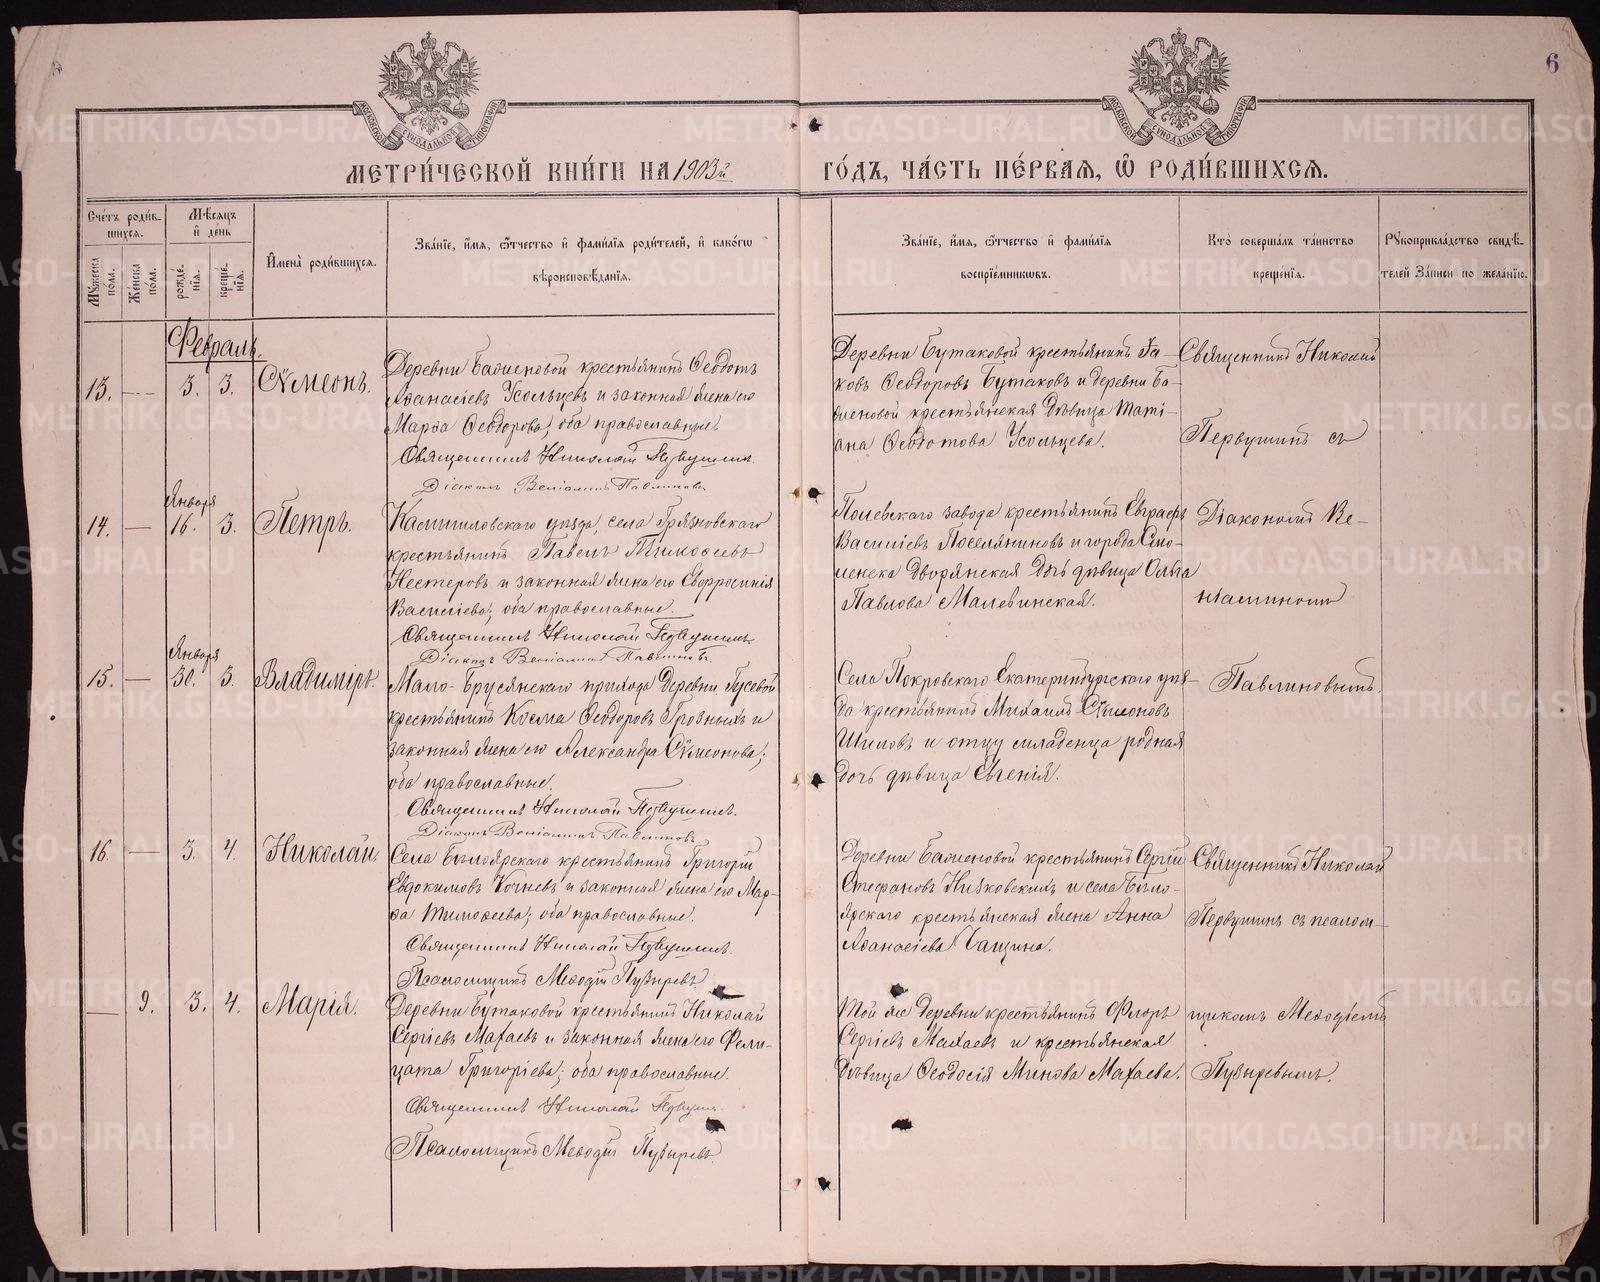 6
МОСКОВСКОЙ СѴНОДАЛЬНОЙ ТИПОГРАФІИ
МОСКОВСКОЙ СѴНОДАЛЬНОЙ ТИПОГРАФІИ
МЕТРИ́ЧЕСКОЙ КНИ́ГИ НА 1903й ГО́ДЪ, ЧА́СТЬ ПЕ́РВАЯ, Ѡ РОДИ́ВШИХСЯ.
Сче́тъ роди́в-
шихся.
Му́жеска
пола.
Же́нска
пола.
Мѣ́сяцъ
и де́нь
рожде́-
нія.
креще́-
нія.
Имена̀ роди́вшихся.
Зва́ніе, и́мя, ѻ́тчество и фами́лія роди́телей, и како́гѡ
вѣроисповѣ́данія.
Зва́ніе, и́мя, ѻ́тчество и фами́лія
воспріе́мникѡвъ.
Кто̀ соверша́лъ та́инство
креще́нія.
Рꙋкоприкла́дство свидѣ́-
телей за́писи по жела́нію.
Февраль.
13. — 3. 3. Сѷмеонъ.
Деревни Баженовой крестьянинъ Ѳеодотъ
Аѳанасіевъ Усольцевъ и законная жена его
Марѳа Ѳеодорова; оба православные.
Священникъ Николай Первушинъ.
Діаконъ Веніаминъ Павлиновъ.
Деревни Бутаковой крестьянинъ Іа-
ковъ Ѳеодоровъ Бутаковъ и деревни Ба-
женовой крестьянская дѣвица Тати-
ана Ѳеодотова Усольцева.
Священникъ Николай
Первушинъ съ
Января
14. — 16. 3. Петръ.
Камышловскаго уѣзда, села Грязновскаго
крестьянинъ Павелъ Тимоѳеевъ
Нестеровъ и законная жена его Евфросинія
Василіева; оба православные.
Священникъ Николай Первушинъ.
Діаконъ Веніаминъ Павлиновъ.
Полевскаго завода крестьянинъ Евграфъ
Василіевъ Поселяниновъ и города Смо-
ленска дворянская дочь дѣвица Ольга
Павлова Малевинская.
Діакономъ Ве-
ніаминомъ
Января
15. — 30. 3. Владиміръ.
Мало-Брусянскаго прихода деревни Гусевой
крестьянинъ Косма Ѳеодоровъ Грозныхъ и
законная жена его Александра Сѷмеонова;
оба православные.
Священникъ Николай Первушинъ.
Діаконъ Веніаминъ Павлиновъ.
Села Покровскаго Екатеринбургскаго уѣз-
да крестьянинъ Михаилъ Сѷмеоновъ
Шиловъ и отцу младенца родная
дочь дѣвица Евгенія.
Павлиновымъ.
16. — 3. 4. Николай.
Села Бѣлоярскаго крестьянинъ Григорій
Евдокимовъ Кочневъ и законная жена его Мар-
ѳа Тимоѳеева; оба православные.
Священникъ Николай Первушинъ.
Псаломщикъ Меѳодій Пузыревъ
Деревни Баженовой крестьянинъ Сергій
Стефановъ Низковскихъ и села Бѣло-
ярскаго крестьянская жена Анна
Аѳанасіева Чащина.
Священникъ Николай
Первушинъ съ псалом-
— 9. 3. 4. Марія.
Деревни Бутаковой крестьянинъ Николай
Сергіевъ Махаевъ и законная жена его Фели-
цата Григоріева; оба православные.
Священникъ Николай Первушинъ
Псаломщикъ Меѳодій Пузыревъ.
Той же деревни крестьянинъ Флоръ
Сергіевъ Махаевъ и крестьянская
дѣвица Ѳеодосія Минова Махаева.
щикомъ Меѳодіемъ
Пузыревымъ.
METRIKI.GASO-URAL.RU